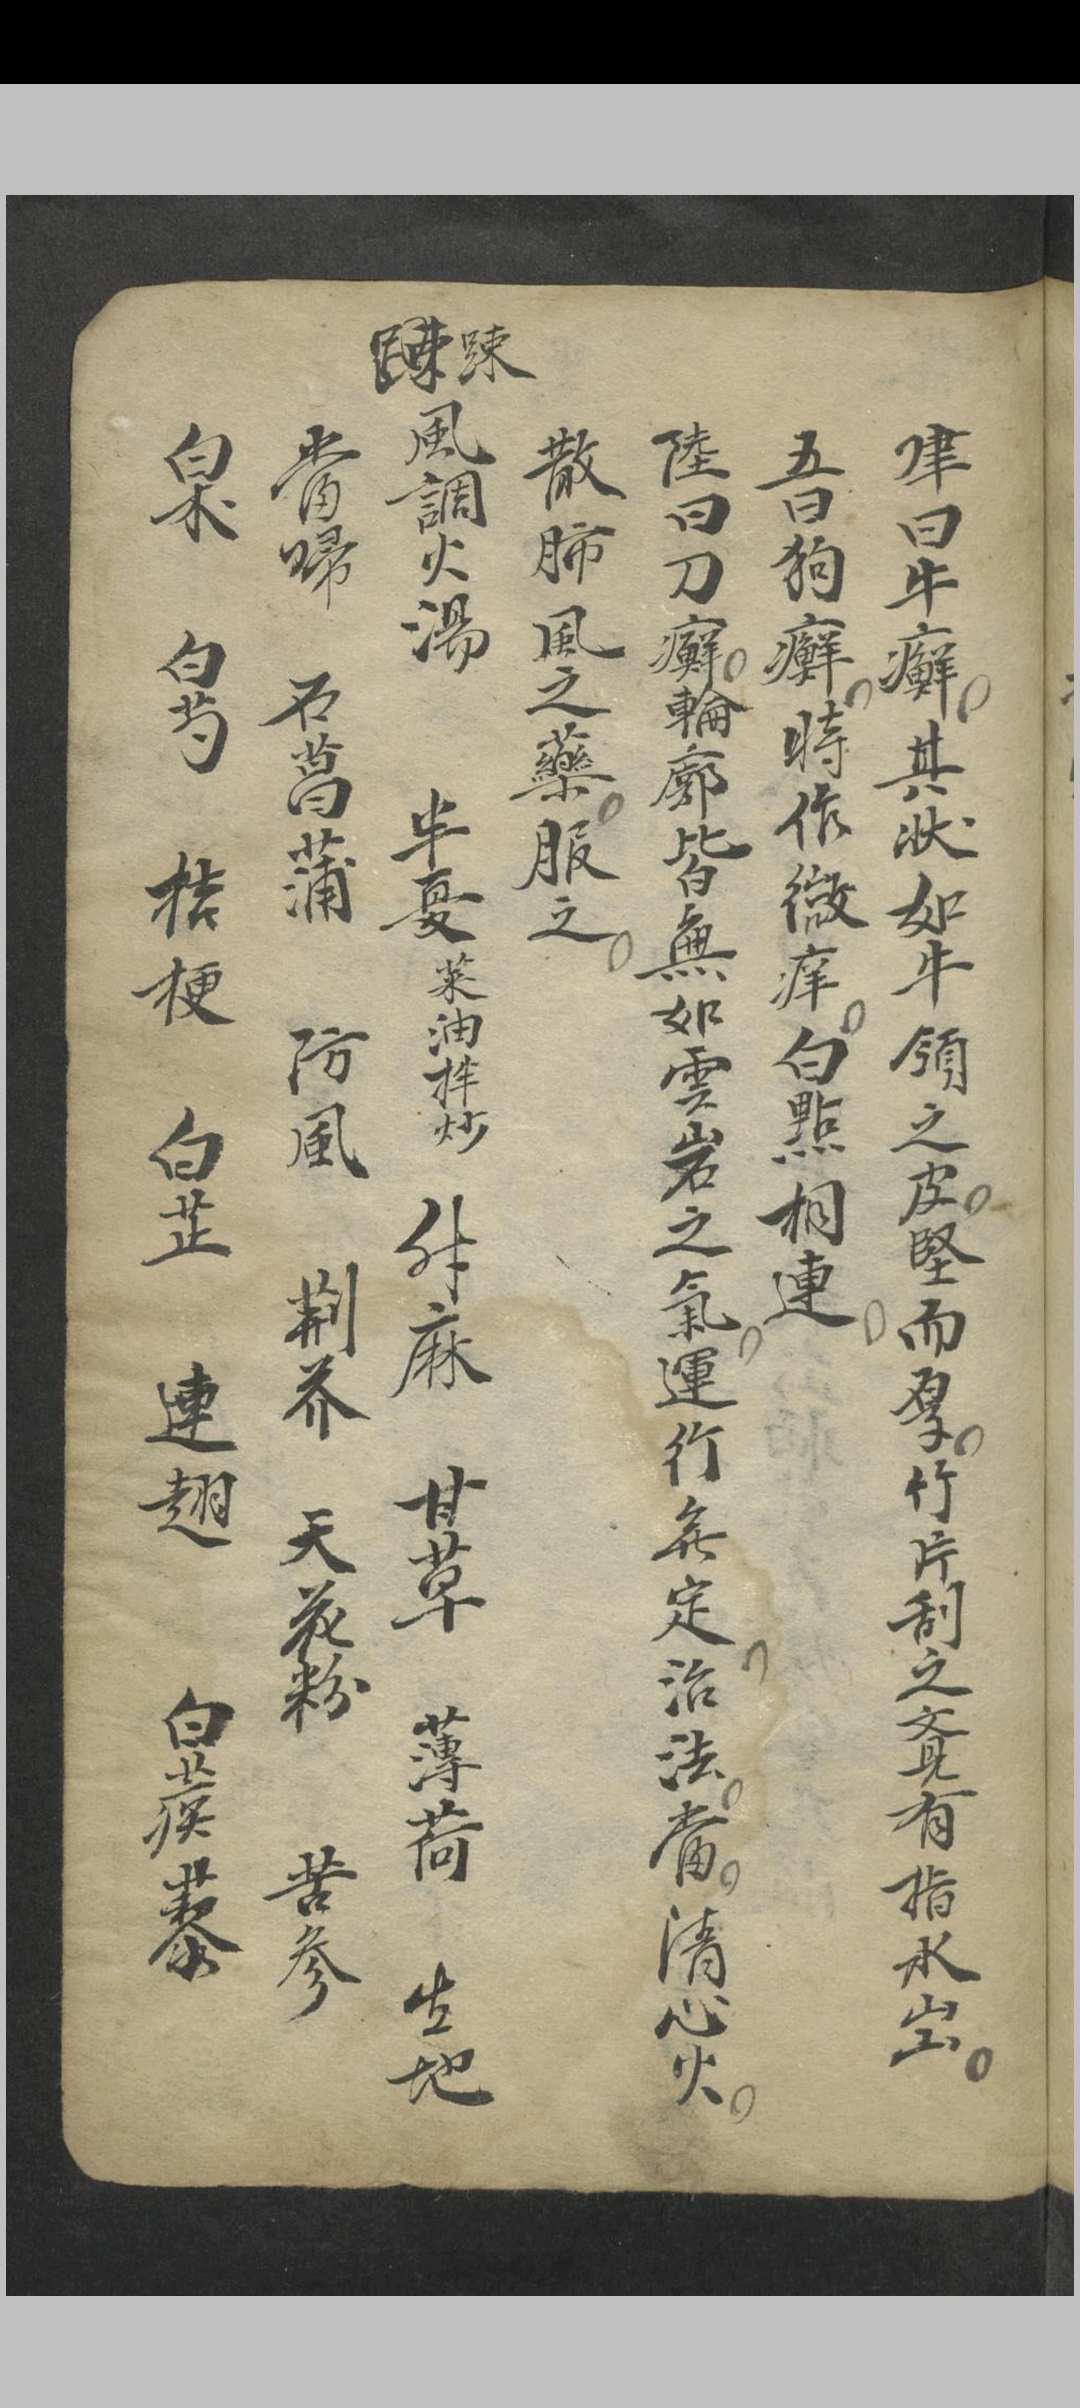 肆曰牛癬其状如牛領之皮堅而厚竹片刮之竟有指水出
五曰狗癬時作微痒白點相連
陸曰刀癬輪廓皆無如雲岩之氣運行無定治法當清心火
散肺風之藥服之
踈風調火湯 半夏菜油拌炒 升麻 甘草 薄荷 生地
當歸 石菖蒲 防風 荆芥 天花粉 苦參
白朮 白芍 桔梗 白芷 連翹 白蒺藜